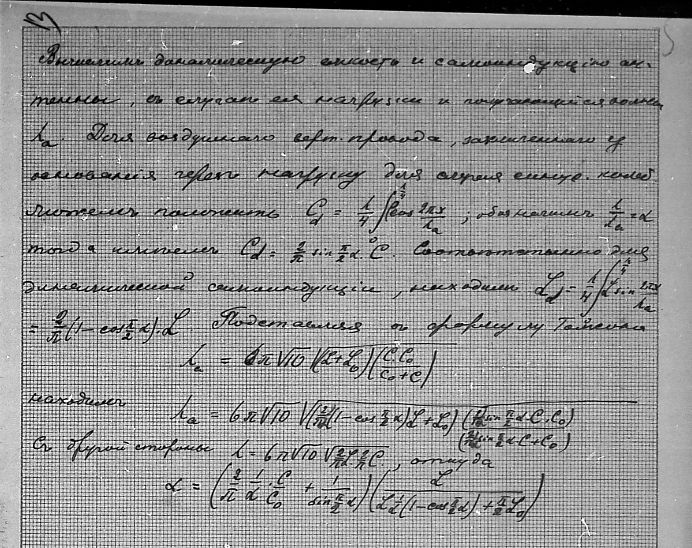 13
Вычислимъ динамическую емкость и самоиндукцiю ан-
тенны, въ случаѣ ея нагрузки и получающейся волны
λₐ. Для воздушнаго верт. провода, заземленнаго у
основанiя черезъ нагрузку для случая синус. колеб.
можемъ положить C_d = λ/4 ∫₀^{λ/4} C cos 2πx/λₐ ; обозначимъ λ/λₐ = α
тогда имѣемъ C_d = 2/π sin π/2 α · C. Соотвѣтственно для
динамической самоиндукцiи, находимъ L_d = λ/4 ∫^{λ/4} L sin 2πx/λₐ
= 2/π (1 - cos π/2 α) · L. Подставляя въ формулу Томсона
λₐ = 6π√10 √(L+L₀)(C·C₀/C₀+C)
находимъ
λₐ = 6π√10 √((1 - cos π/2 α) L + L₀) (sin π/2 α · C · C₀ / sin π/2 α C + C₀)
Съ другой стороны λ = 6π√10 √(2/π L 2/π C), откуда
α = (2/π · 1/α · C/C₀ + 1/sin π/2 α) (L / L 1/α (1 - cos π/2 α) + π/2 L₀)